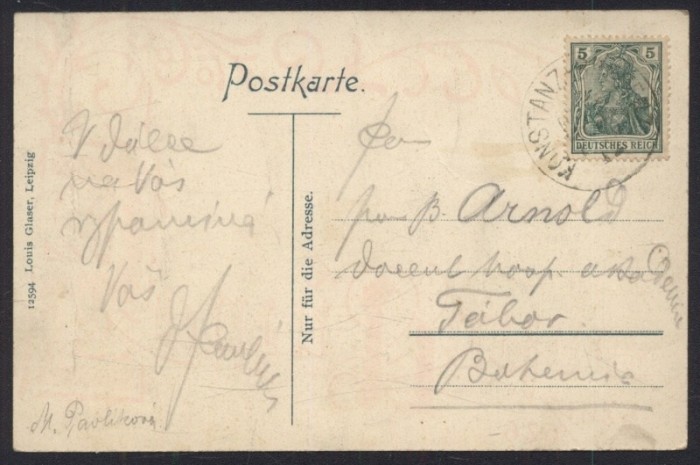 Postkarte.
5 5
DEUTSCHES REICH
KONSTANZ
V dálce
na Vás
vzpomíná
Váš
M. Pavlíková
12594 Louis Glaser, Leipzig
Nur für die Adresse.
pan B. Arnold
docent hosp. akademie
Tábor.
Bohemia